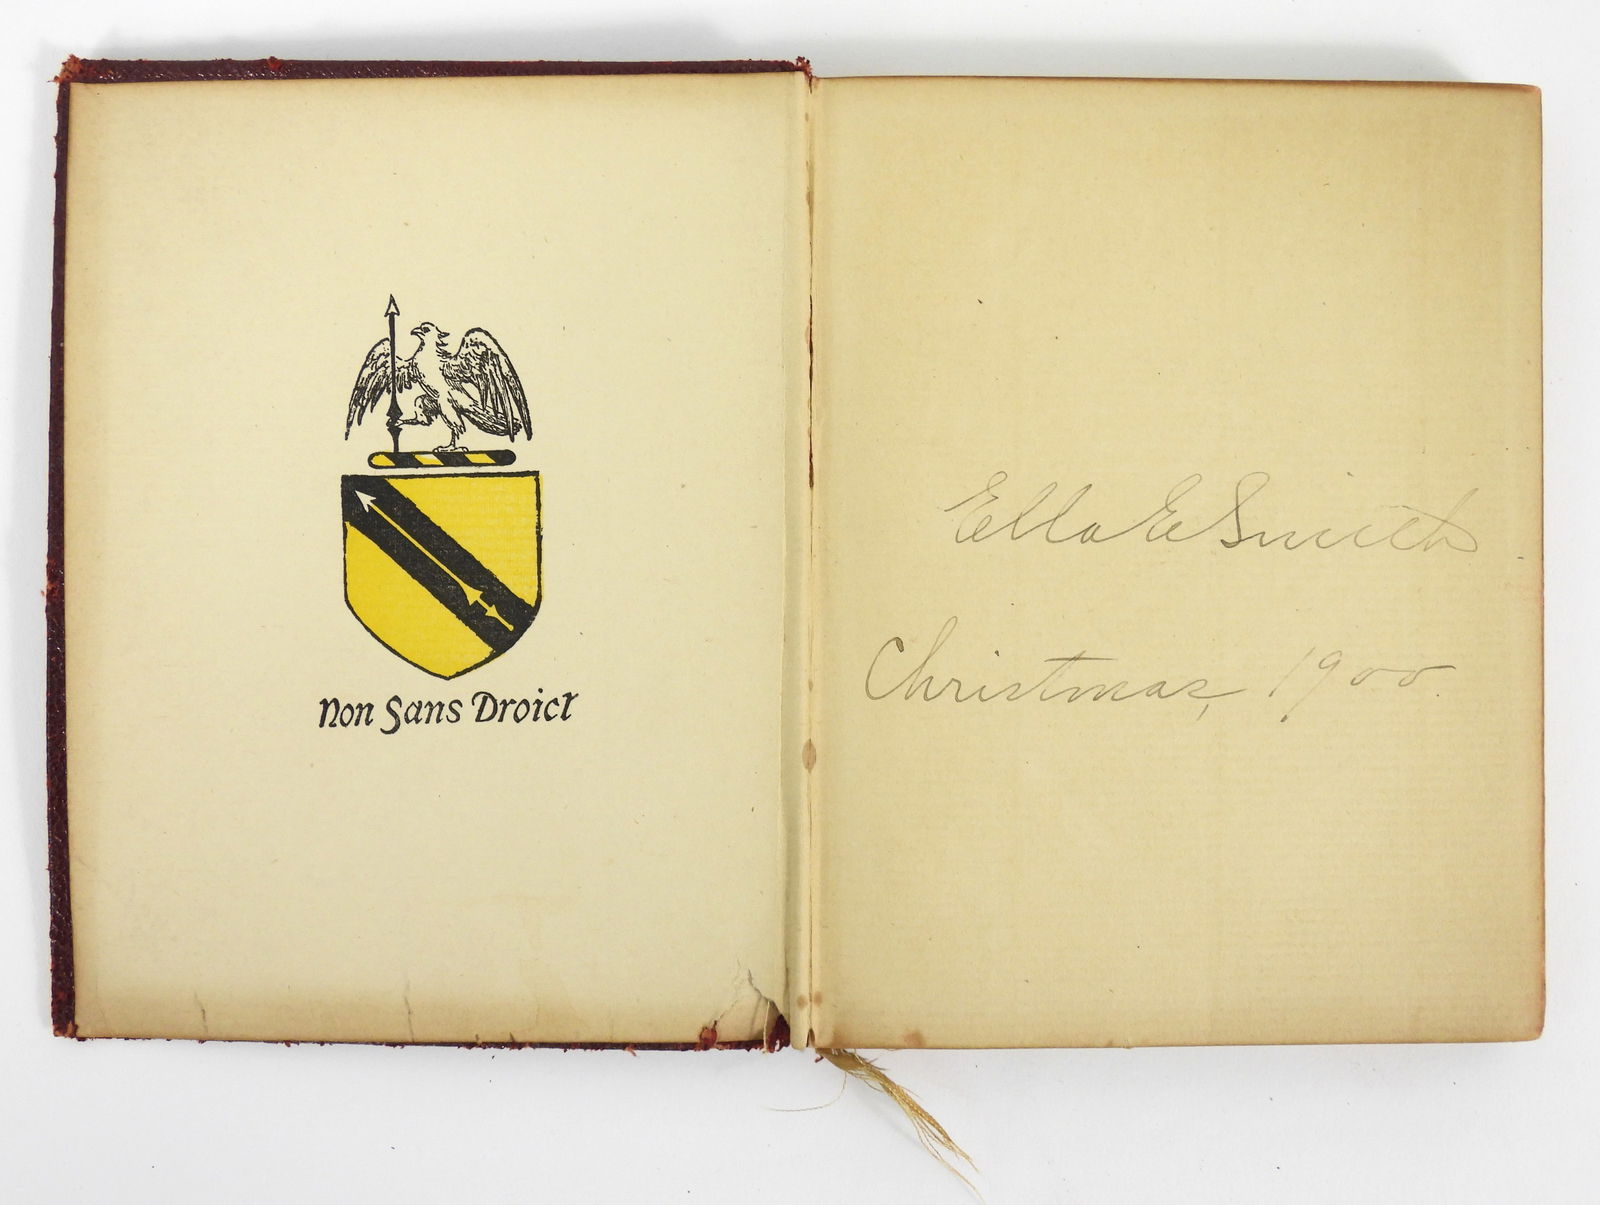 Non Sans Droict
Ella E Smith
Christmas, 1900.